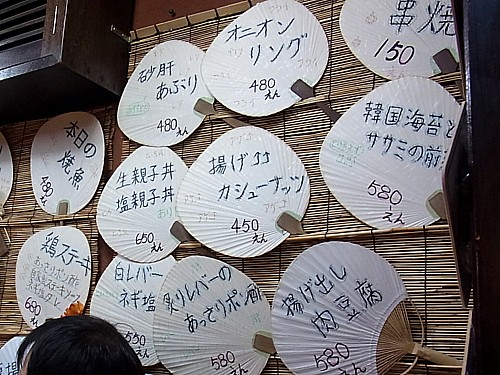 砂肝
あぶり
480
えん
オニオン
リング
480
えん
串焼
150
本日の
焼魚
480
えん
生親子丼
塩親子丼
650
えん
揚げココ
カシューナッツ
450
えん
韓国海苔と
ササミの前
580
えん
鶏ステーキ
あっさりポン酢
680
白レバー
ネギ塩
550
えん
炙りレバーの
あっさりポン酢
580
えん
揚げ出し
肉豆腐
580
えん